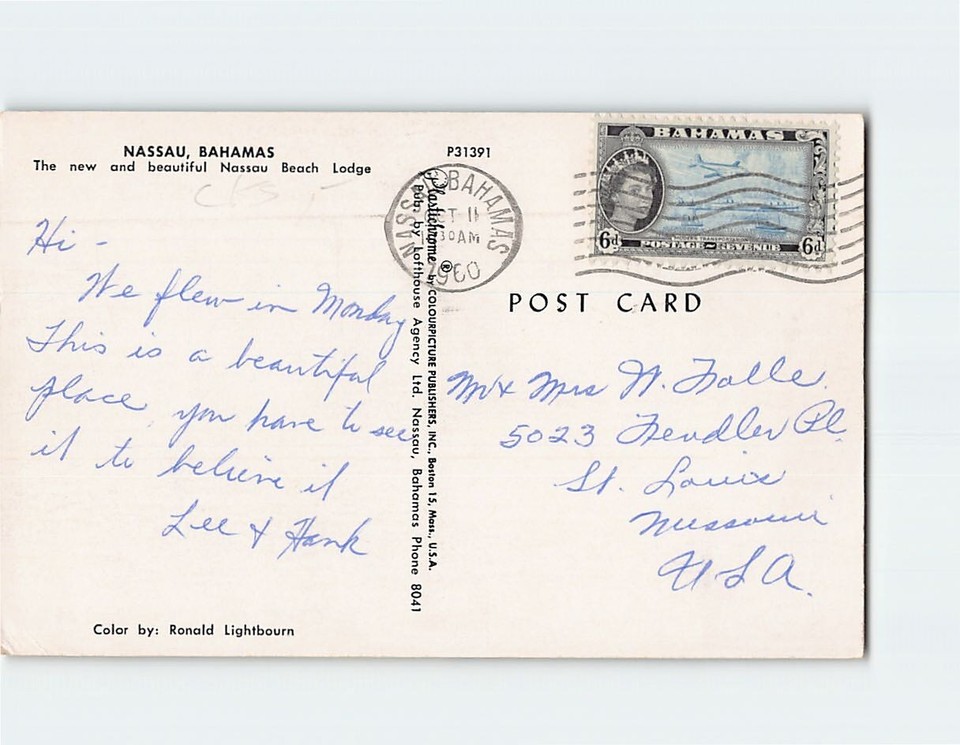 NASSAU, BAHAMAS
The new and beautiful Nassau Beach Lodge
P31391
Hi -
We flew in Monday
This is a beautiful
place, you have to see
it to believe it
Lee & Hank
Color by: Ronald Lightbourn
Plastichrome ® by COLOURPICTURE PUBLISHERS, INC., Boston 15, Mass., U.S.A.
Pub. by Lofthouse Agency Ltd. Nassau, Bahamas Phone 8041
NASSAU BAHAMAS
OCT 11
30AM
1960
BAHAMAS
6d
POSTAGE REVENUE
6d
POST CARD
Mr & Mrs W. Nolle
5023 Fendler Pl.
St. Louis
Missouri
U S A.